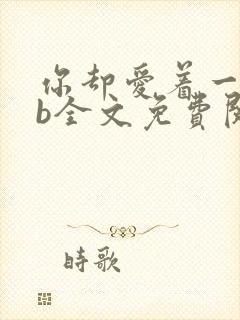 你却爱着一
b全文免費阅
時歌